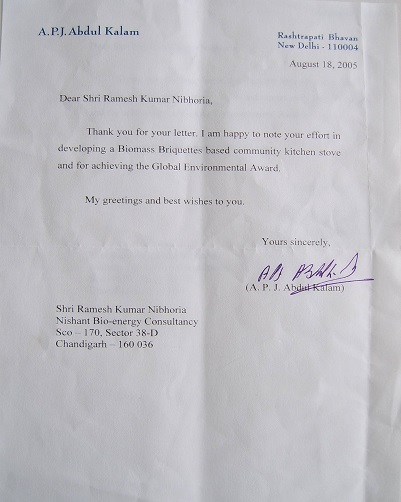 A.P.J. Abdul Kalam
Rashtrapati Bhavan
New Delhi - 110004
August 18, 2005
Dear Shri Ramesh Kumar Nibhoria,
Thank you for your letter. I am happy to note your effort in
developing a Biomass Briquettes based community kitchen stove
and for achieving the Global Environmental Award.
My greetings and best wishes to you.
Yours sincerely,
(A. P. J. Abdul Kalam)
Shri Ramesh Kumar Nibhoria
Nishant Bio-energy Consultancy
Sco – 170, Sector 38-D
Chandigarh – 160 036